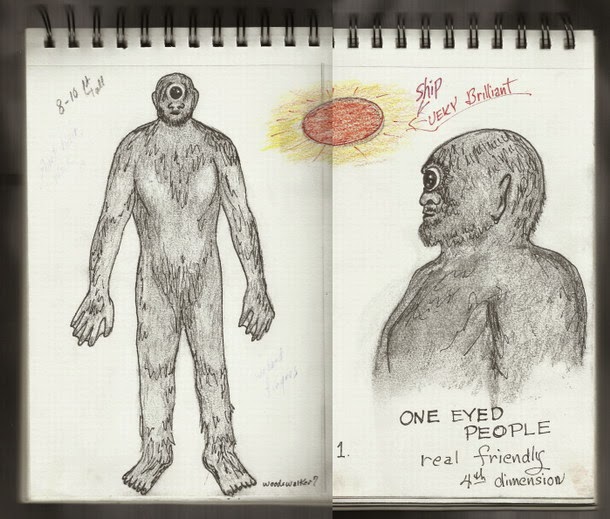 8-10 ft
tall
woodswalker?
Ship
VERY Brilliant
ONE EYED
PEOPLE
1.
real friendly
4th dimension